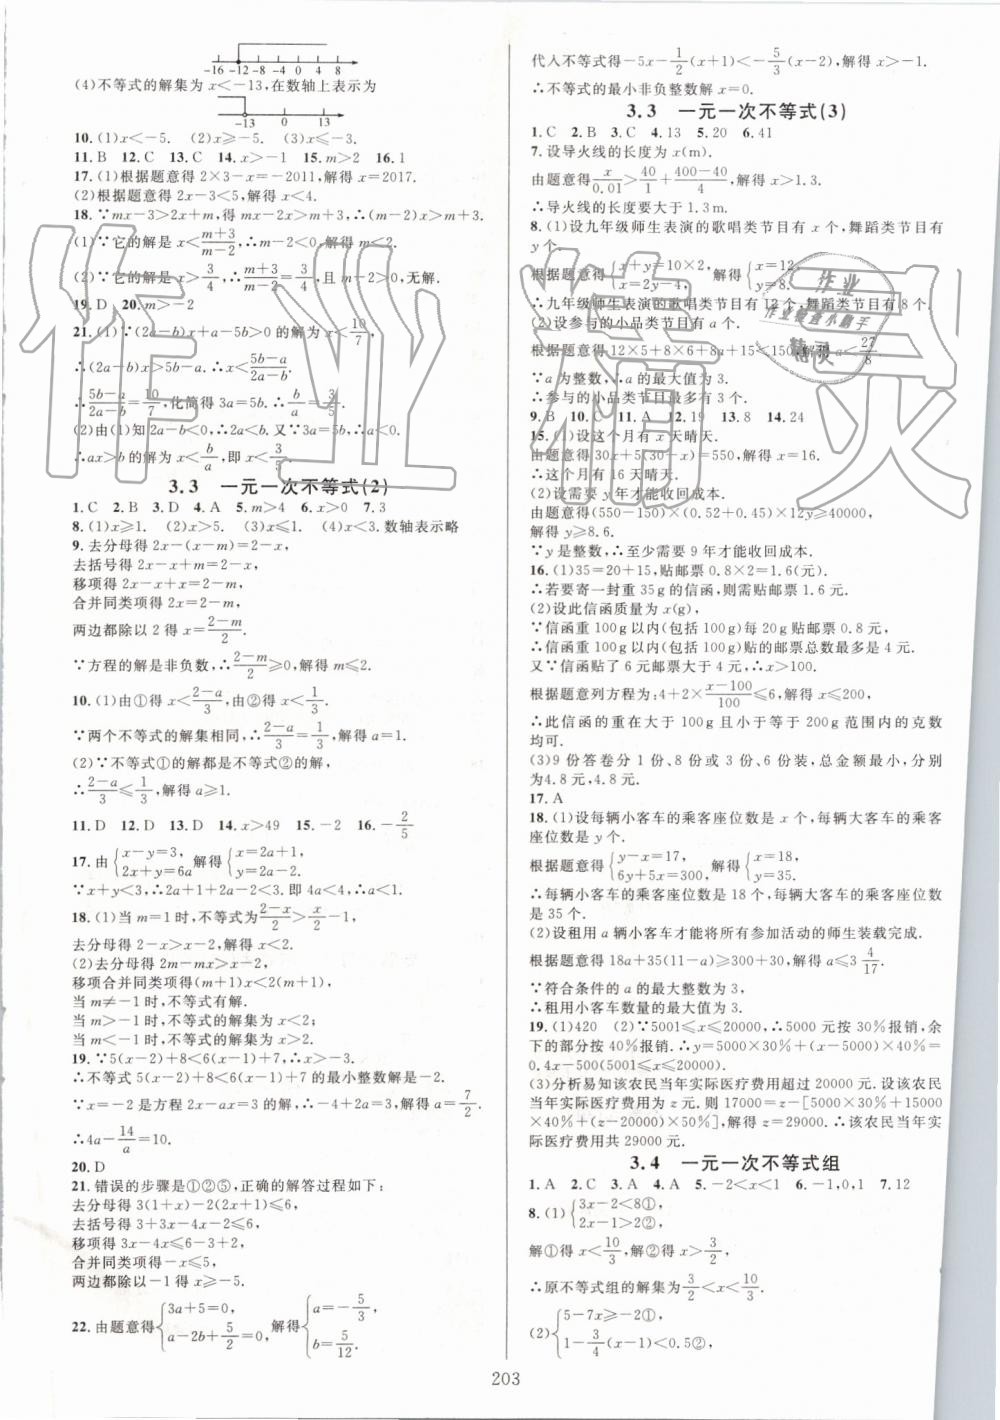 -16 -12 -8 -4 0 4 8
(4)不等式的解集为 x<-13,在数轴上表示为
-13 0 13
10.(1)x<-5. (2)x≥-5. (3)x≤-3.
11.B 12.C 13.C 14.x>-1 15.m>2 16.1
17.(1)根据题意得 2×3-x=-2011,解得 x=2017.
(2)根据题意得 2x-3<5,解得 x<4.
18.∵mx-3>2x+m,得 mx-2x>m+3,∴(m-2)x>m+3.
(1)∵它的解是 x<(m+3)/(m-2),∴m-2<0,解得 m<2.
(2)∵它的解是 x>3/4,∴(m+3)/(m-2)=3/4,且 m-2>0,无解.
19.D 20.m>-2
21.(1)∵(2a-b)x+a-5b>0 的解为 x<10/7,
∴(2a-b)x>5b-a.∴x<(5b-a)/(2a-b).
∴(5b-a)/(2a-b)=10/7,化简得 3a=5b.∴b/a=3/5.
(2)由(1)知 2a-b<0,∴2a<b.又∵3a=5b,∴a<0,
∴ax>b 的解为 x<b/a,即 x<3/5.
3.3 一元一次不等式(2)
1.C 2.B 3.D 4.A 5.m>4 6.x>0 7.3
8.(1)x≥1. (2)x>5. (3)x≤1. (4)x<3. 数轴表示略
9.去分母得 2x-(x-m)=2-x,
去括号得 2x-x+m=2-x,
移项得 2x-x+x=2-m,
合并同类项得 2x=2-m,
两边都除以 2 得 x=(2-m)/2.
∵方程的解是非负数,∴(2-m)/2≥0,解得 m≤2.
10.(1)由①得 x<(2-a)/3,由②得 x<1/3.
∵两个不等式的解集相同,∴(2-a)/3=1/3,解得 a=1.
(2)∵不等式①的解都是不等式②的解,
∴(2-a)/3≤1/3,解得 a≥1.
11.D 12.D 13.D 14.x>49 15.-2 16.-2/5
17.由{x-y=3, 2x+y=6a 解得{x=2a+1, y=2a-2.
∵x+y<3,∴2a+1+2a-2<3.即 4a<4,∴a<1.
18.(1)当 m=1 时,不等式为(2-x)/2>x/2-1,
去分母得 2-x>x-2,解得 x<2.
(2)去分母得 2m-mx>x-2,
移项合并同类项得(m+1)x<2(m+1),
当 m≠-1 时,不等式有解.
当 m>-1 时,不等式的解集为 x<2;
当 m<-1 时,不等式的解集为 x>2.
19.∵5(x-2)+8<6(x-1)+7,∴x>-3.
∴不等式 5(x-2)+8<6(x-1)+7 的最小整数解是-2.
∵x=-2 是方程 2x-ax=3 的解,∴-4+2a=3,解得 a=7/2.
∴4a-14/a=10.
20.D
21.错误的步骤是①②⑤,正确的解答过程如下:
去分母得 3(1+x)-2(2x+1)≤6,
去括号得 3+3x-4x-2≤6,
移项得 3x-4x≤6-3+2,
合并同类项得-x≤5,
两边都除以-1 得 x≥-5.
22.由题意得{3a+5=0, a-2b+5/2=0, 解得{a=-5/3, b=5/12.
代入不等式得-5x-1/2(x+1)<-5/3(x-2),解得 x>-1.
∴不等式的最小非负整数解 x=0.
3.3 一元一次不等式(3)
1.C 2.B 3.C 4.13 5.20 6.41
7.设导火线的长度为 x(m).
由题意得x/0.01>40/1+(400-40)/4,解得 x>1.3.
∴导火线的长度要大于 1.3m.
8.(1)设九年级师生表演的歌唱类节目有 x 个,舞蹈类节目有
y 个.
根据题意得{x+y=10×2, x=2y-4, 解得{x=12, y=8.
∴九年级师生表演的歌唱类节目有 12 个,舞蹈类节目有 8 个.
(2)设参与的小品类节目有 a 个.
根据题意得 12×5+8×6+8a+15<150,解得 a<27/8.
∵a 为整数,∴a 的最大值为 3.
∴参与的小品类节目最多有 3 个.
9.B 10.C 11.A 12.19 13.8 14.24
15.(1)设这个月有 x 天晴天.
由题意得 30x+5(30-x)=550,解得 x=16.
∴这个月有 16 天晴天.
(2)设需要 y 年才能收回成本.
由题意得(550-150)×(0.52+0.45)×12y≥40000,
解得 y≥8.6.
∵y 是整数,∴至少需要 9 年才能收回成本.
16.(1)35=20+15,贴邮票 0.8×2=1.6(元).
∴若要寄一封重 35g 的信函,则需贴邮票 1.6 元.
(2)设此信函质量为 x(g),
∵信函重 100g 以内(包括 100g)每 20g 贴邮票 0.8 元,
∴信函重 100g 以内(包括 100g)贴的邮票总数最多是 4 元.
又∵信函贴了 6 元邮票大于 4 元,∴x>100.
根据题意列方程为:4+2×(x-100)/100≤6,解得 x≤200,
∴此信函的重在大于 100g 且小于等于 200g 范围内的克数
均可.
(3)9 份答卷分 1 份、8 份或 3 份、6 份装,总金额最小,分别
为4.8 元,4.8 元.
17.A
18.(1)设每辆小客车的乘客座位数是 x 个,每辆大客车的乘客
座位数是 y 个.
根据题意得{y-x=17, 6y+5x=300, 解得{x=18, y=35.
∴每辆小客车的乘客座位数是 18 个,每辆大客车的乘客座位数
是 35 个.
(2)设租用 a 辆小客车才能将所有参加活动的师生装载完成.
根据题意得 18a+35(11-a)≥300+30,解得 a≤3 4/17.
∵符合条件的 a 的最大整数为 3,
∴租用小客车数量的最大值为 3.
19.(1)420 (2)∵5001≤x≤20000,∴5000 元按 30%报销,余
下的部分按 40%报销.∴y=5000×30%+(x-5000)×40%=
0.4x-500(5001≤x≤20000).
(3)分析易知该农民当年实际医疗费用超过 20000 元.设该农民
当年实际医疗费用为 z 元.则 17000=z-[5000×30%+15000
×40%+(z-20000)×50%],解得 z=29000.∴该农民当年实
际医疗费用共 29000 元.
3.4 一元一次不等式组
1.A 2.C 3.A 4.A 5.-2<x<1 6.-1,0,1 7.12
8.(1){3x-2<8①, 2x-1>2②,
解①得 x<10/3,解②得 x>3/2,
∴原不等式组的解集为3/2<x<10/3.
(2){5-7x≥-2①, 1-3/4(x-1)<0.5②,
203
作业
作业检查小帮手
精灵
作业精灵